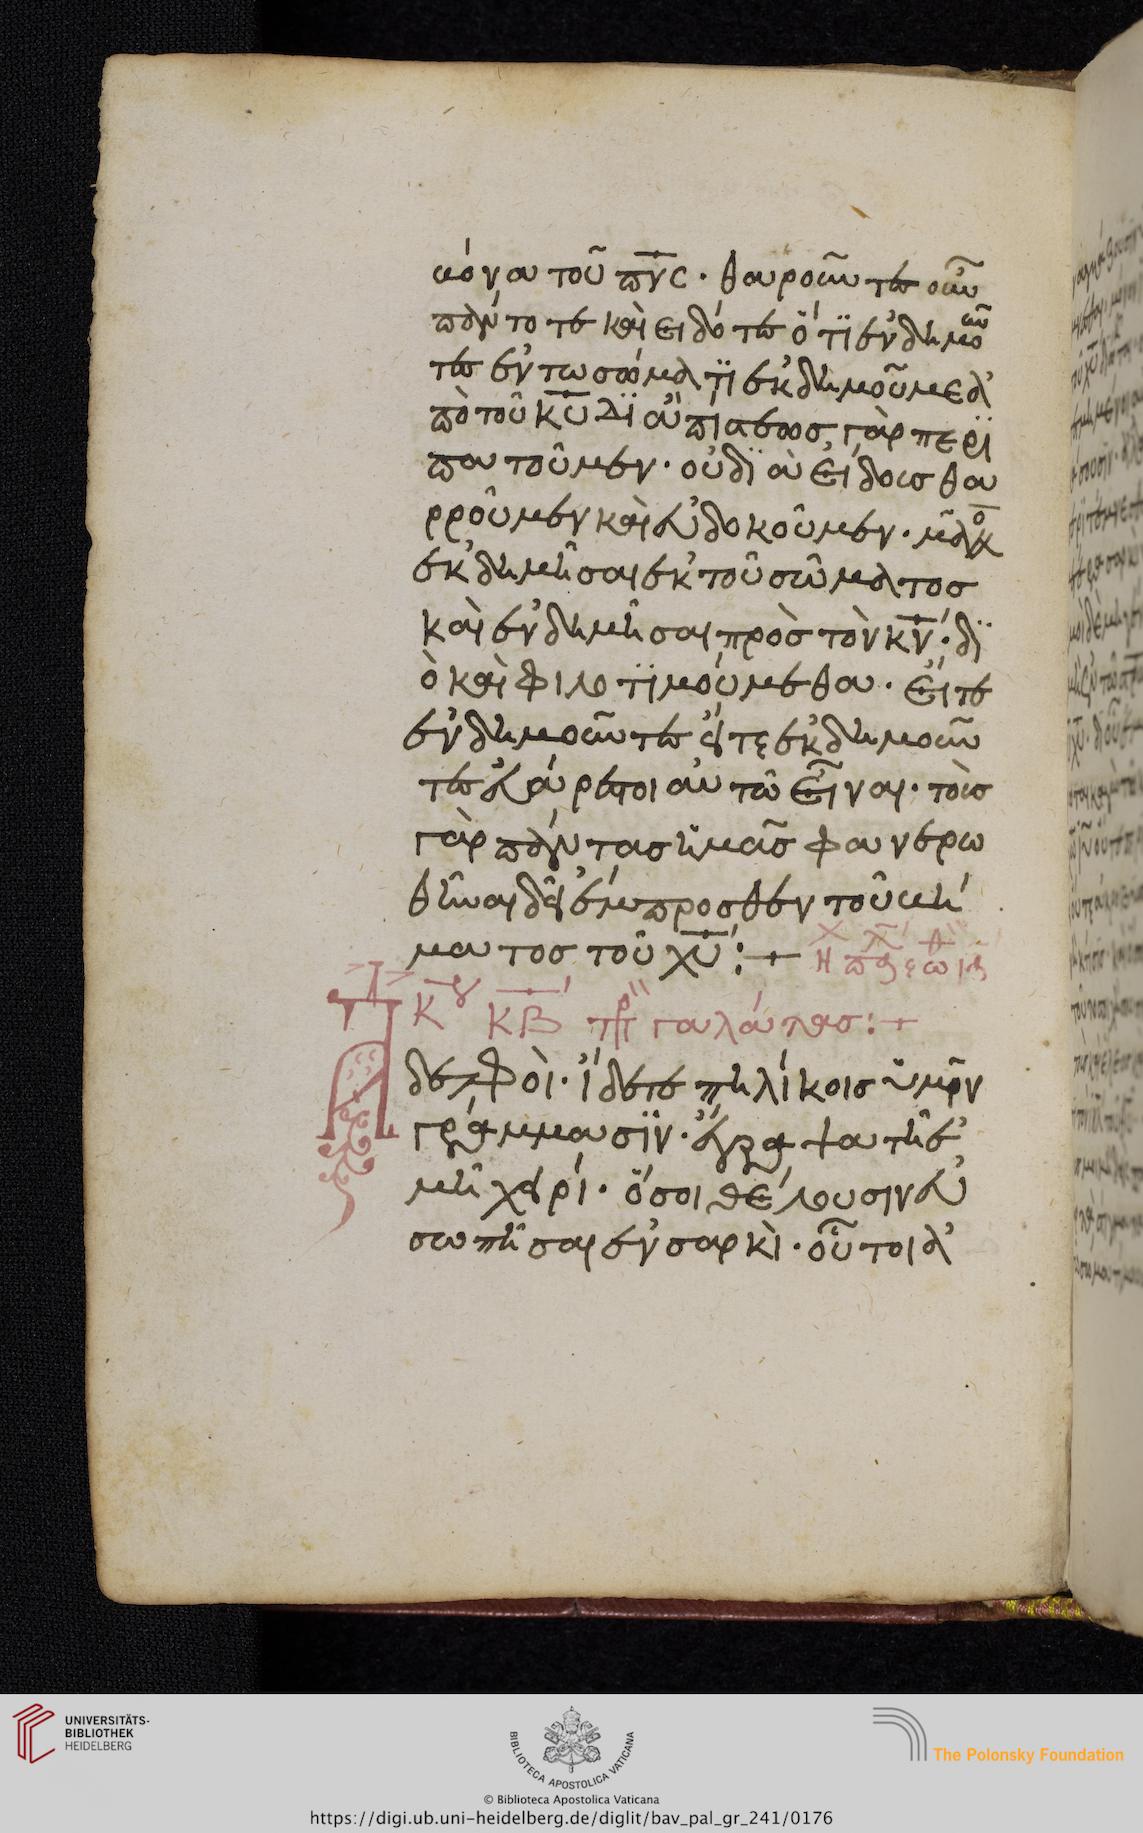 βῶνα του π̅ν̅ς̅ · θαροῦντες οὖν
πάντοτε καὶ ειδότες ὅτϊ ἐνδημοῦν
τες ἐν τω σώματϊ ἐκδημοῦμεν ἀ
πὸ τοῦ κ̅υ̅ διἀ πίστεως γὰρ περϊ
πατοῦμεν · οὐ διὰ εἴδους θα
ρροῦμεν καὶ εὐδοκοῦμεν · μᾶλλον
ἐκδημῆσαι ἐκ τοῦ σώματος
καὶ ἐνδημῆσαι πρὸς τὸν κ̅ν̅ · δϊ
ὸ καὶ φιλοτϊμούμεθα · εἴτε
ἐνδημοῦντες εἴτε ἐκδημοῦν
τες εὐάρεστοι αὐτῶ εἶναι · τοὺς
γὰρ πάντας ἡμᾶς φανερω
θῆναι δεῖ ἔμπροσθεν τοῦ βή
ματος τοῦ χ̅υ̅ :+
Κυ κ̅β̅ πρ γαλάτας :+
Ἀδελφοὶ · ἴδετε πηλίκοις ὑμῖν
γράμμασϊν · ἔγραψα τῆ ἐ
μῆ χειρί · ὅσοι θέλουσιν εὐ
σωπῆσαι ἐν σαρκὶ · οὗτοι ἀ
UNIVERSITÄTS-
BIBLIOTHEK
HEIDELBERG
BIBLIOTECA APOSTOLICA VATICANA
The Polonsky Foundation
© Biblioteca Apostolica Vaticana
https://digi.ub.uni-heidelberg.de/diglit/bav_pal_gr_241/0176